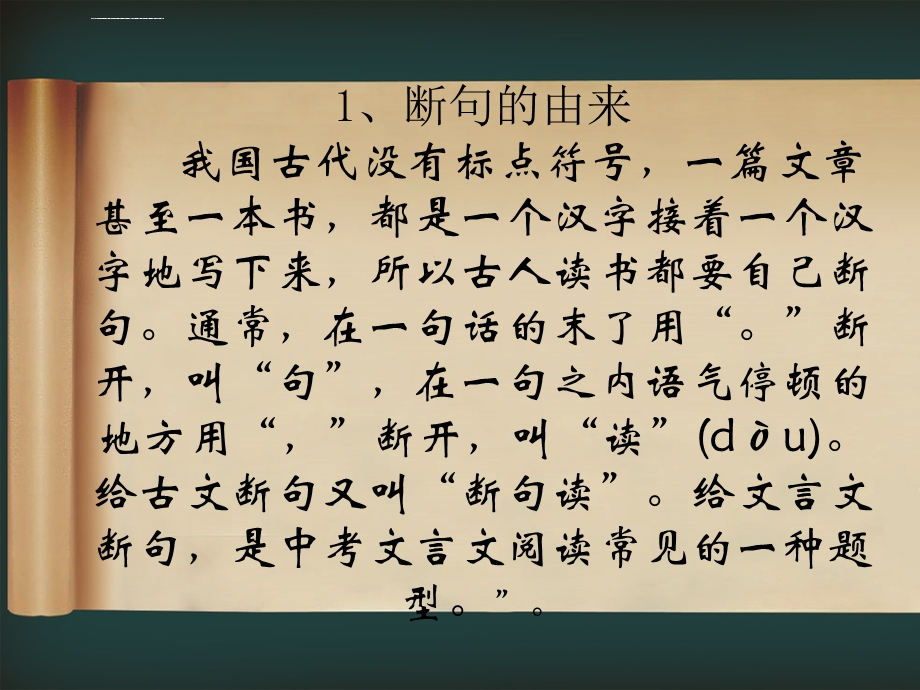 1、断句的由来
我国古代没有标点符号，一篇文章
甚至一本书，都是一个汉字接着一个汉
字地写下来，所以古人读书都要自己断
句。通常，在一句话的末了用“。”断
开，叫“句”，在一句之内语气停顿的
地方用“，”断开，叫“读”(dòu)。
给古文断句又叫“断句读”。给文言文
断句，是中考文言文阅读常见的一种题
型。”。